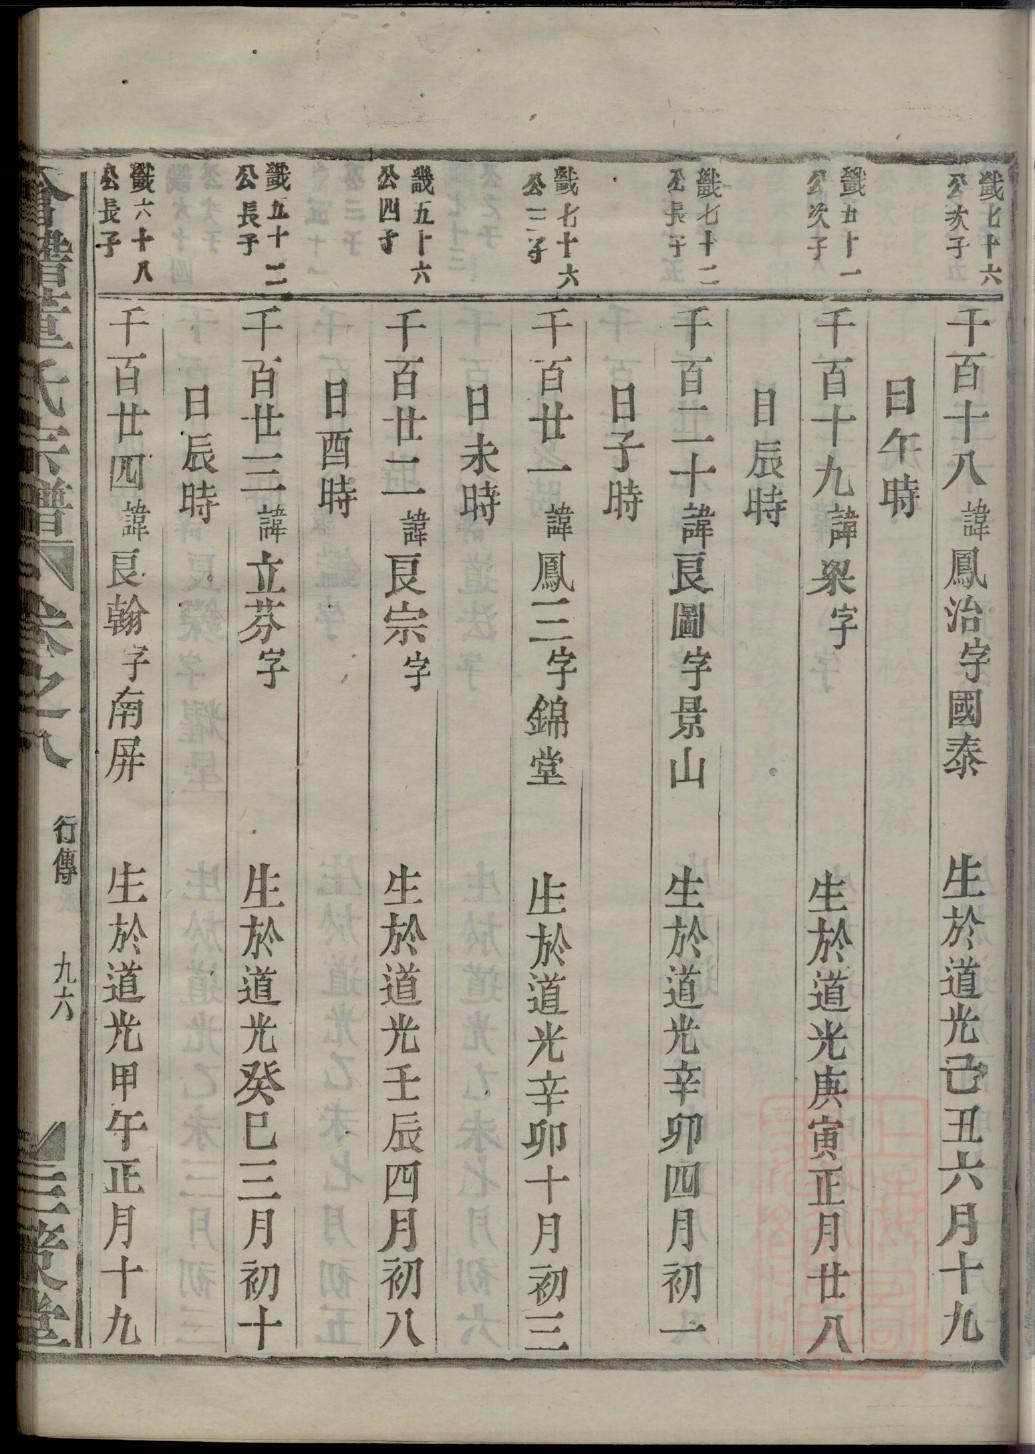 鐖七十六
公次子
千百十八諱鳳治字國泰 生於道光己丑六月十九
日午時
鐖五十一
公次子
千百十九諱梁字 生於道光庚寅正月廿八
日辰時
鐖七十二
公長子
千百二十諱良圖字景山 生於道光辛卯四月初一
日子時
鐖七十六
公三子
千百廿一諱鳳三字錦堂 生於道光辛卯十月初三
日未時
鐖五十六
公四子
千百廿二諱良宗字 生於道光壬辰四月初八
日酉時
鐖五十二
公長子
千百廿三諱立芬字 生於道光癸巳三月初十
日辰時
鐖六十八
公長子
千百廿四諱良翰字南屏 生於道光甲午正月十九
會稽董氏宗譜 卷之八 行傳 九六 三策堂